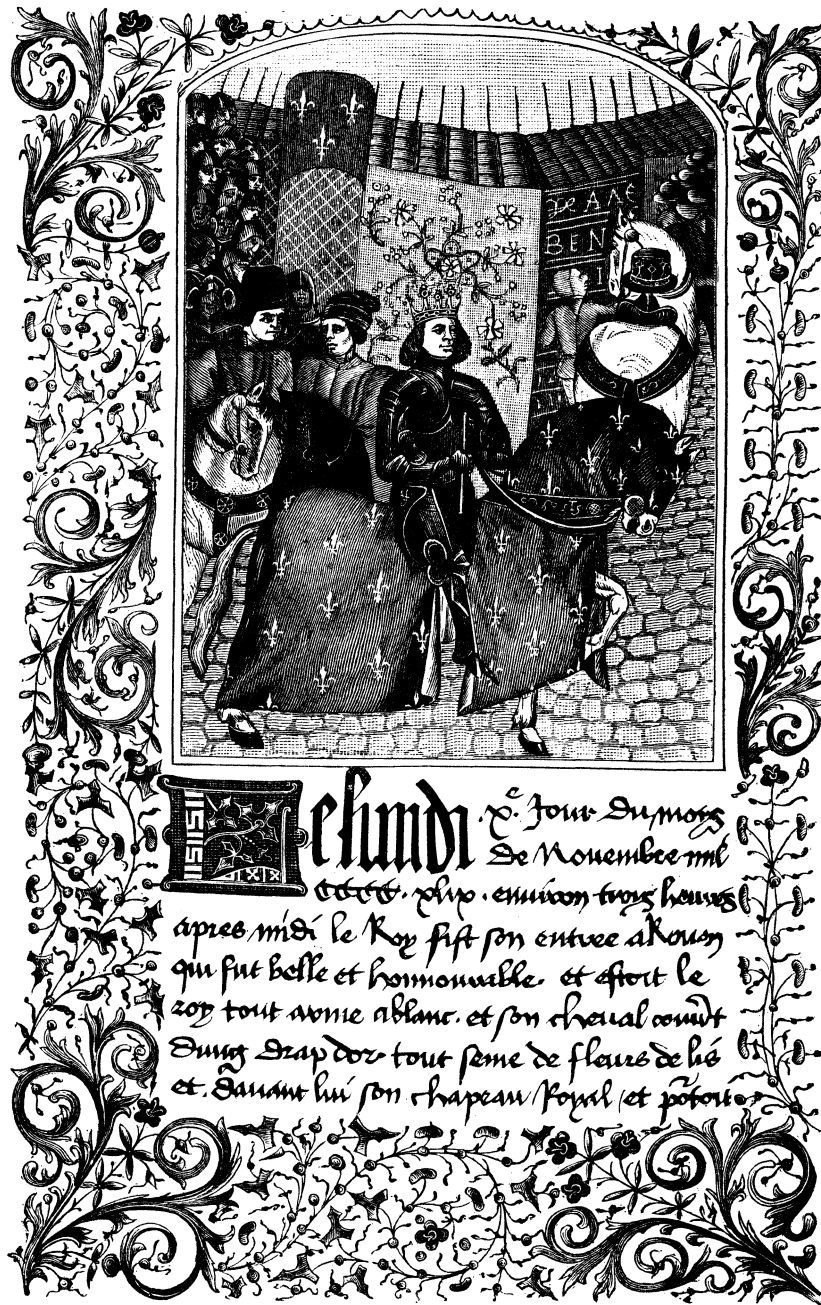 DE ANE
BEN
I
Lelundi .xe. Jour du moys
de Nouembre mil
CCCC. xlix. enuiron troys heures
apres midi le Roy fist son entree a Rouen
qui fut belle et honnourable. et estoit le
roy tout arme ablanc. et son cheual couuert
dung drap dor tout seme de fleurs de lis
et. dauant lui son chapeau Royal, et portoit